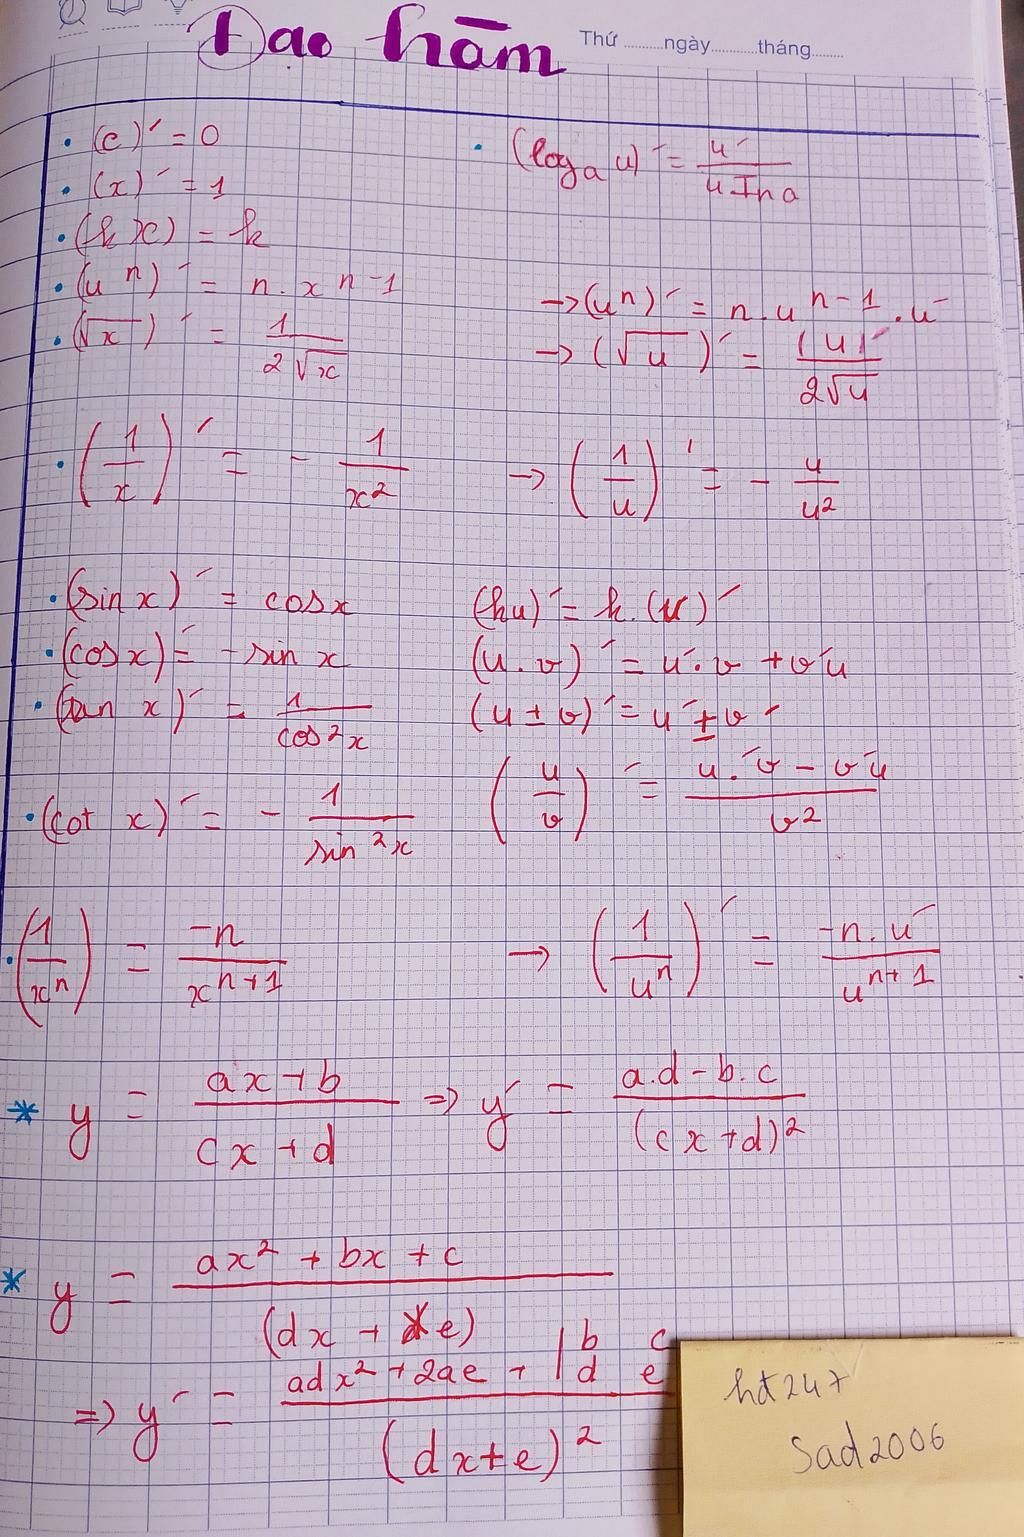 Đạo hàm
Thứ ........ngày.........tháng.......
• (c)′ = 0
• (x)′ = 1
• (kx) = k
• (u^n)′ = n.x^{n-1}
• (√x)′ = 1/(2√x)
• (log_a u)′ = u′/(u.Ina)
→ (u^n)′ = n.u^{n-1}.u′
→ (√u)′ = (u)′/(2√u)
• (1/x)′ = - 1/x²
→ (1/u)′ = - u/u²
• (sinx)′ = cosx
• (cosx)′ = -sinx
• (tan x)′ = 1/cos²x
• (cot x)′ = - 1/sin²x
(ku)′ = k.(u)′
(u.v)′ = u′.v + v′u
(u ± v)′ = u′ ± v′
(u/v)′ = (u.′v - v′u)/v²
• (1/x^n) = -n/x^{n+1}
→ (1/u^n)′ = -n.u′/u^{n+1}
* y = (ax+b)/(cx+d) => y′ = (a.d - b.c)/(cx+d)²
* y = (ax² + bx + c)/(dx + e)
=> y′ = (adx² + 2ae + |b c d e)/(dx+e)²
hd247
Sad2006